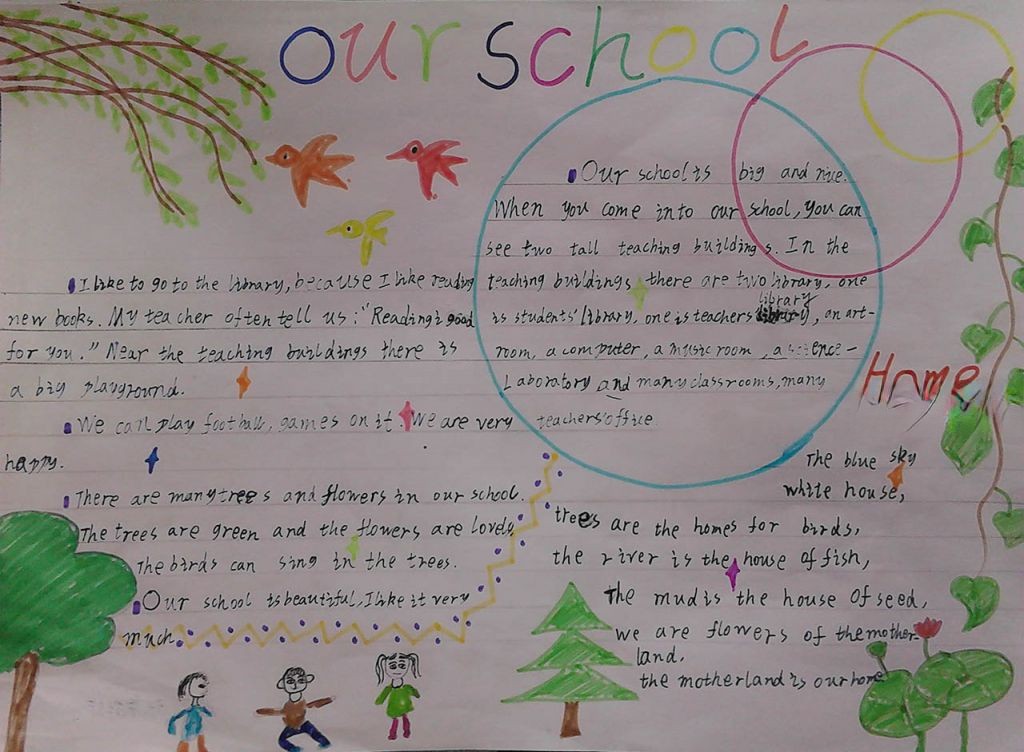 OUr SchooL
Our school is big and nice.
When you come into our school, you can
see two tall teaching buildings. In the
teaching buildings there are two library, one
is students' library, one is teachers library, an art-
room, a computer, a music room, a science-
Laboratory and many classrooms, many
teachers'office.
I like to go to the library, because I like reading
new books. My teacher often tell us: "Reading is good
for you." Near the teaching buildings there is
a big playground.
We can play football, games on it. We are very
happy.
There are many trees and flowers in our school.
The trees are green and the flowers are lovely.
The birds can sing in the trees.
Our school is beautiful, I like it very
much.
Home
The blue sky
white house,
trees are the homes for birds,
the river is the house of fish,
the mud is the house of seed,
we are flowers of the mother-
land.
the motherland is our home